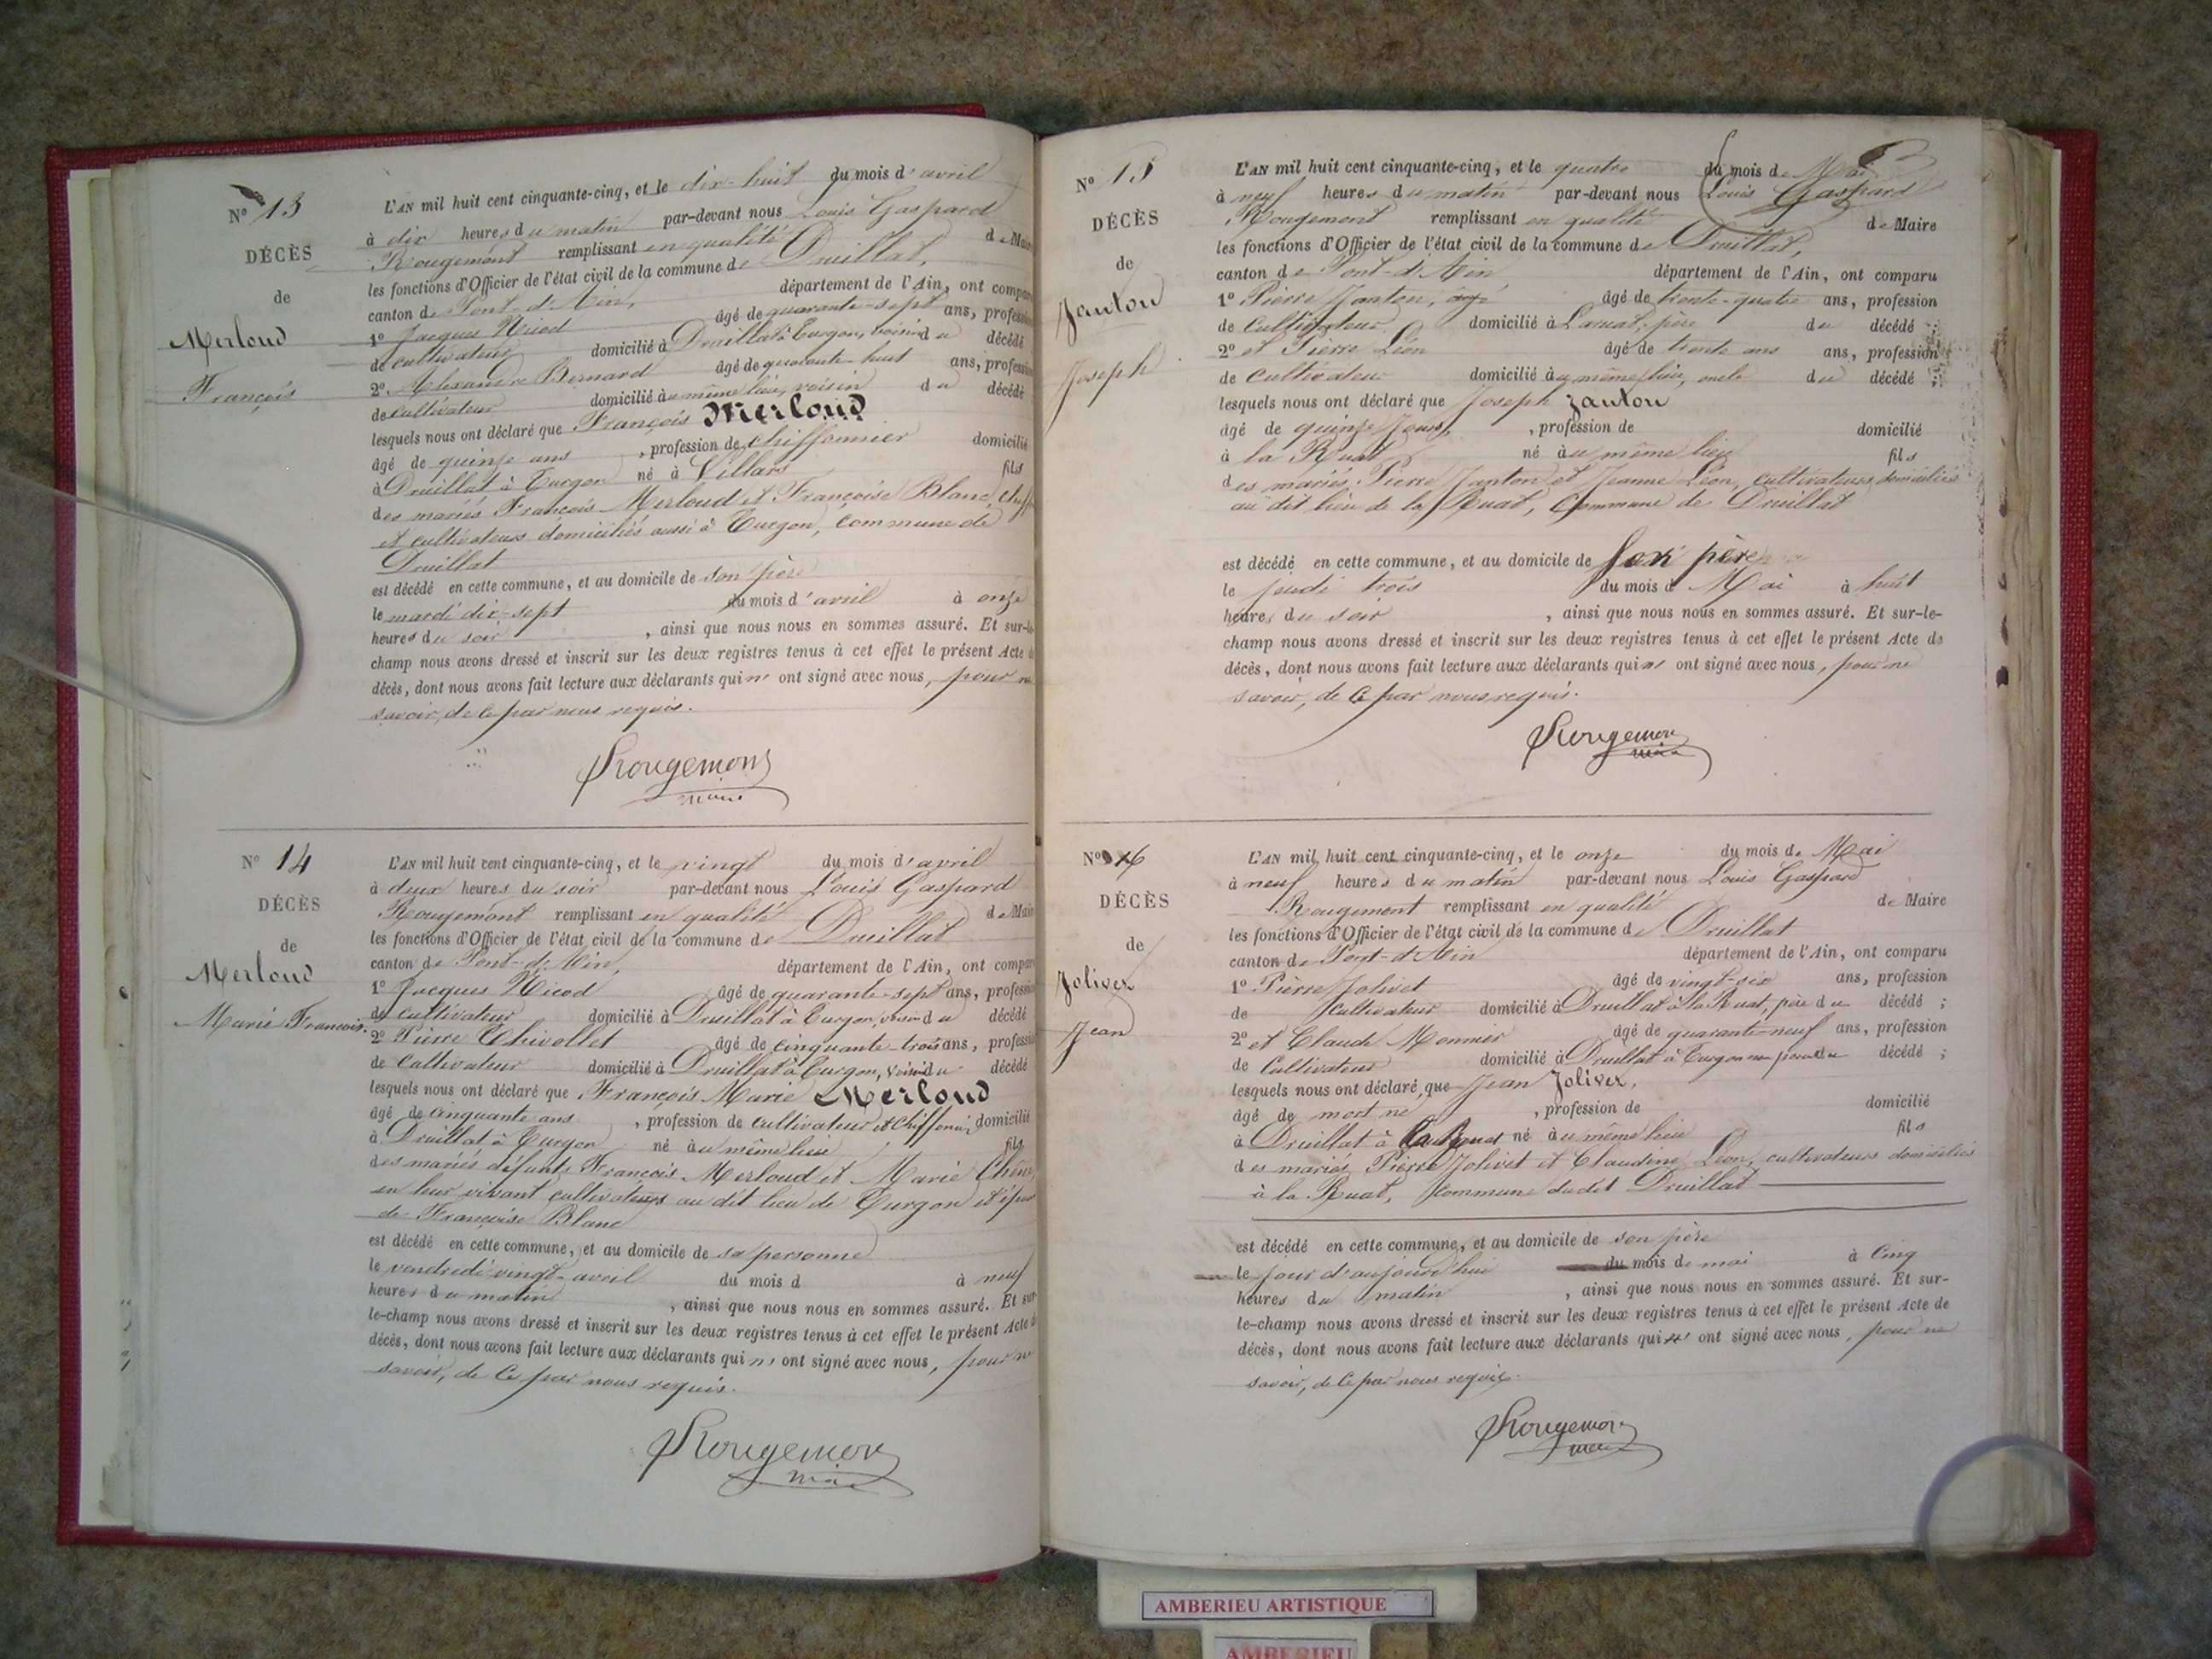 Nº 13
DÉCÈS
de
Merloud
François
L'AN mil huit cent cinquante-cinq, et le dix-huit du mois d'avril
à dix heures du matin par-devant nous Louis Gaspard
Rougemont remplissant en qualité de Maire
les fonctions d'Officier de l'état civil de la commune de Druillat,
canton de Pont-d'Ain, département de l'Ain, ont comparu
1º Jacques Nicod âgé de quarante-sept ans, profession
de cultivateur domicilié à Druillat à Turgon, voisin du décédé
2º Alexandre Bernard âgé de quarante-huit ans, profession
de cultivateur domicilié au même lieu, voisin du décédé
lesquels nous ont déclaré que François Merloud
âgé de quinze ans, profession de chiffonnier domicilié
à Druillat à Turgon né à Villars fils
des mariés François Merloud et Françoise Blanc, chiff
et cultivateurs domiciliés aussi à Turgon, commune de
Druillat
est décédé en cette commune, et au domicile de son père
le mardi dix-sept du mois d'avril à onze
heures du soir, ainsi que nous nous en sommes assuré. Et sur-le-
champ nous avons dressé et inscrit sur les deux registres tenus à cet effet le présent Acte d
décès, dont nous avons fait lecture aux déclarants qui n' ont signé avec nous, pour ne
savoir, de ce par nous requis.
Rougemont
maire
Nº 14
DÉCÈS
de
Merloud
Marie François.
L'AN mil huit cent cinquante-cinq, et le vingt du mois d'avril
à deux heures du soir par-devant nous Louis Gaspard
Rougemont remplissant en qualité de Maire
les fonctions d'Officier de l'état civil de la commune de Druillat
canton de Pont-d'Ain, département de l'Ain, ont comparu
1º Jacques Nicod âgé de quarante-sept ans, profession
de cultivateur domicilié à Druillat à Turgon, voisin du décédé
2º Pierre Chivollet âgé de cinquante-trois ans, profession
de cultivateur domicilié à Druillat à Turgon, voisin du décédé
lesquels nous ont déclaré que François Marie Merloud
âgé de cinquante ans, profession de cultivateur et chiffonnier domicilié
à Druillat à Turgon né au même lieu fils
des mariés défunts François Merloud et Marie
en leur vivant cultivateurs au dit lieu de Turgon et époux
de Françoise Blanc
est décédé en cette commune, et au domicile de sa personne
le vendredi vingt-avril du mois d à neuf
heures du matin, ainsi que nous nous en sommes assuré. Et sur-
le-champ nous avons dressé et inscrit sur les deux registres tenus à cet effet le présent Acte d
décès, dont nous avons fait lecture aux déclarants qui n' ont signé avec nous, pour ne
savoir, de ce par nous requis.
Rougemont
maire
Nº 15
DÉCÈS
de
Janton
Joseph
L'AN mil huit cent cinquante-cinq, et le quatre du mois de Mai
à neuf heures du matin par-devant nous Louis Gaspard
Rougemont remplissant en qualité de Maire
les fonctions d'Officier de l'état civil de la commune de Druillat,
canton de Pont-d'Ain département de l'Ain, ont comparu
1º Pierre Janton, âgé âgé de trente-quatre ans, profession
de cultivateur domicilié à Laruat, père du décédé ;
2º et Pierre Léon âgé de trente ans ans, profession
de cultivateur domicilié au même lieu, oncle du décédé ;
lesquels nous ont déclaré que Joseph Janton
âgé de quinze jours, profession de domicilié
à la Ruat né au même lieu fils
des mariés Pierre Janton et Jeanne Léon, cultivateurs, domiciliés
au dit lieu de la Ruat, commune de Druillat
est décédé en cette commune, et au domicile de son père
le jeudi trois du mois d Mai à huit
heures du soir, ainsi que nous nous en sommes assuré. Et sur-le-
champ nous avons dressé et inscrit sur les deux registres tenus à cet effet le présent Acte de
décès, dont nous avons fait lecture aux déclarants qui n' ont signé avec nous, pour ne
savoir, de ce par nous requis.
Rougemont
maire
Nº 16
DÉCÈS
de
Jolivet
Jean
L'AN mil huit cent cinquante-cinq, et le onze du mois de Mai
à neuf heures du matin par-devant nous Louis Gaspard
Rougemont remplissant en qualité de Maire
les fonctions d'Officier de l'état civil de la commune de Druillat
canton de Pont-d'Ain département de l'Ain, ont comparu
1º Pierre Jolivet âgé de vingt-six ans, profession
de cultivateur domicilié à Druillat à la Ruat, père du décédé ;
2º et Claude Monnier âgé de quarante-neuf ans, profession
de cultivateur domicilié à Druillat à Turgon non parent du décédé ;
lesquels nous ont déclaré que Jean Jolivet,
âgé de mort né, profession de domicilié
à Druillat à la Ruat né au même lieu fils
des mariés Pierre Jolivet et Claudine Léon, cultivateurs domiciliés
à la Ruat, commune dudit Druillat
est décédé en cette commune, et au domicile de son père
le jour d'aujourd'hui du mois de mai à cinq
heures du matin, ainsi que nous nous en sommes assuré. Et sur-
le-champ nous avons dressé et inscrit sur les deux registres tenus à cet effet le présent Acte de
décès, dont nous avons fait lecture aux déclarants qui n' ont signé avec nous, pour ne
savoir, de ce par nous requis.
Rougemont
maire
AMBERIEU ARTISTIQUE
AMBERIEU